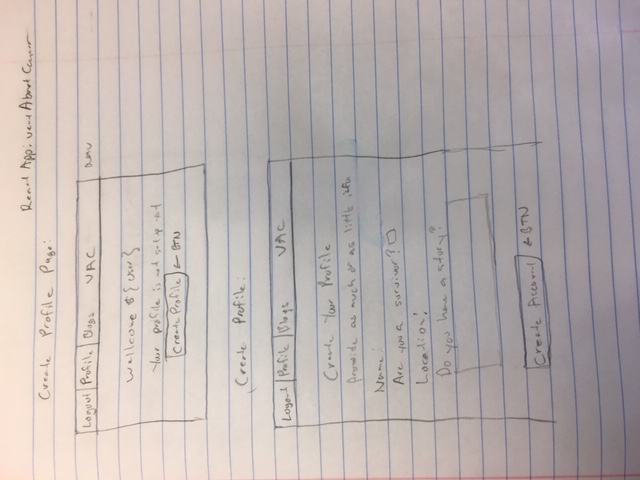 React App: vent About Cancer
Create Profile Page:
Logout Profile Blogs VAC
wellcome ${user}
Your profile is not set up yet
Create Profile ← BTN
Create Profile:
Logout Profile Blogs VAC
Create Your Profile
Provide as much or as little info
Name:
Are you a survivor?
Location:
Do you have a story?
Create Account ← BTN